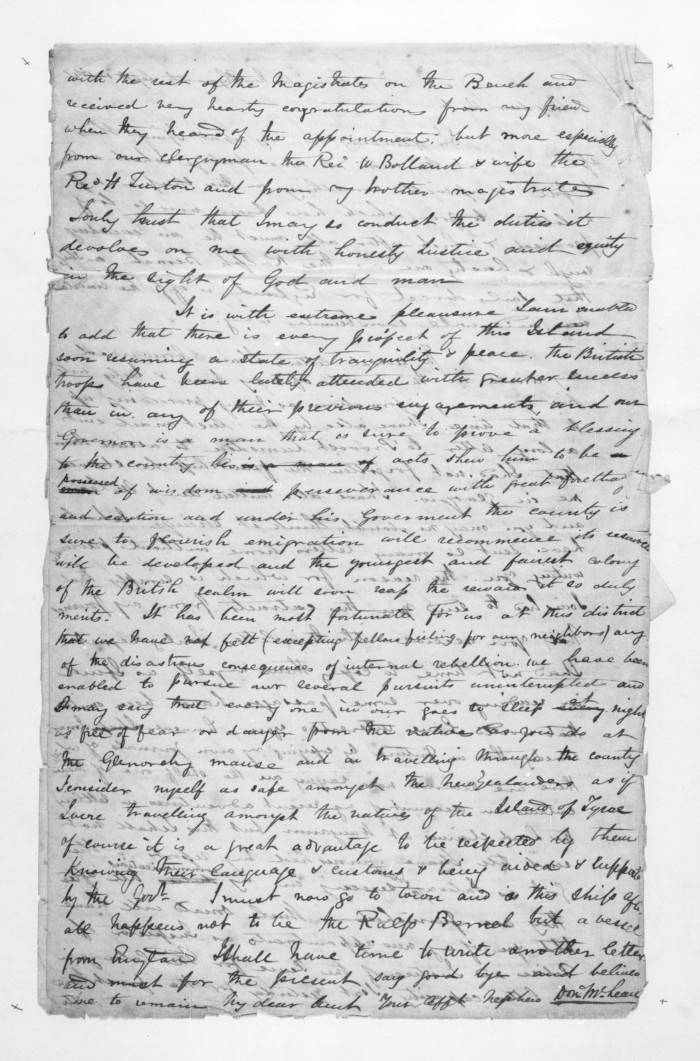 with the rest of the Magistrates on the Bench and
received very hearty congratulations from my frien
when they heard of the appointment. but more especially
from our clergyman the Rev W Bolland & wife the
Revd H Turton and from my brother magistrates
I only trust that I may so conduct the duties it
devolves on me with honesty Justice and equity
in the sight of God and man
It is with extreme pleasure I am enabled
to add that there is every prospect of this Island
soon resuming a state of tranquility & peace. The British
troops have been lately attended with greater success
than in any of their previous engagements, and our
Governor is a man that is sure to prove a blessing
to the country his is a man of acts shew him to be a
possessed man of wisdom and perseverance with great
and caution and under his Goverment the country is
sure to flourish emigration will recommence its resources
will be developed and the youngest and fairest colony
of the British realm will soon reap the reward it so duly
merits. It has been most fortunate for us at this district
that we have not felt (excepting fellow feeling for our neighbors) any
of the disastrous consequences of internal rebellion. we have been
enabled to pursue our several pursuits uninterupted and
I may say that every one in our goes to sleep at night
as free of fear or danger from the native as you do at
the Glenorchy manse and in travelling through the country
I consider myself as safe amongst the New Zealanders as if
I were travelling amongst the natives of the Island of Tyree
of course it is a great advantage to be respected by them
Knowing their language & customs & being aided & support
by the Govt. I must now go to town and as this ship after
all happens not to be the Ralph Bernal but a vessel
from England I shall have time to write another letter
and must for the present say good bye and believe
me to remain My dear Aunt Your afft Nephew Dond McLean